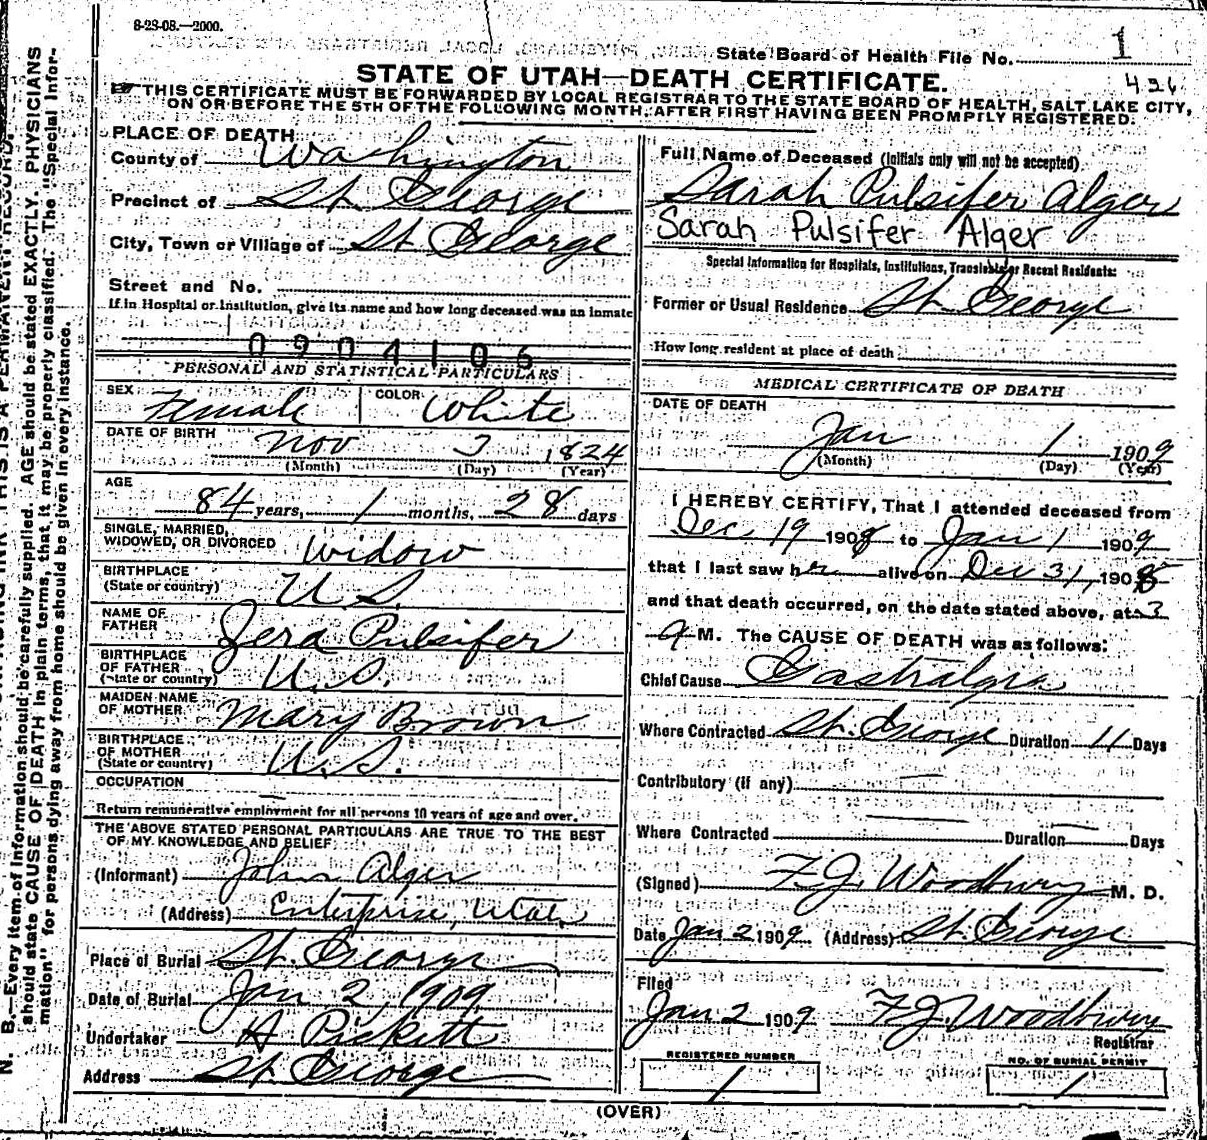 8-28-08.—2000.
State Board of Health File No. 1
426
STATE OF UTAH—DEATH CERTIFICATE.
THIS CERTIFICATE MUST BE FORWARDED BY LOCAL REGISTRAR TO THE STATE BOARD OF HEALTH, SALT LAKE CITY,
ON OR BEFORE THE 5TH OF THE FOLLOWING MONTH, AFTER FIRST HAVING BEEN PROMPTLY REGISTERED.
PLACE OF DEATH
County of Washington
Precinct of St. George
City, Town or Village of St George
Street and No.
If in Hospital or Institution, give its name and how long deceased was an inmate
0904106
PERSONAL AND STATISTICAL PARTICULARS
SEX Female COLOR White
DATE OF BIRTH Nov 3 1824
(Month) (Day) (Year)
AGE
84 years, 1 months, 28 days
SINGLE, MARRIED,
WIDOWED, OR DIVORCED Widow
BIRTHPLACE
(State or country) U S.
NAME OF
FATHER Zera Pulsifer
BIRTHPLACE
OF FATHER
(State or country) U. S.
MAIDEN NAME
OF MOTHER Mary Brown
BIRTHPLACE
OF MOTHER
(State or country) U. S.
OCCUPATION
Return remunerative employment for all persons 10 years of age and over.
THE ABOVE STATED PERSONAL PARTICULARS ARE TRUE TO THE BEST
OF MY KNOWLEDGE AND BELIEF
(Informant) John Alger
(Address) Enterprise, Utah,
Place of Burial St. George
Date of Burial Jan 2, 1909
Undertaker A Pickett
Address St. George
Full Name of Deceased (Initials only will not be accepted)
Sarah Pulsifer Alger
Sarah Pulsifer Alger
Special Information for Hospitals, Institutions, Transients or Recent Residents:
Former or Usual Residence St. George
How long resident at place of death
MEDICAL CERTIFICATE OF DEATH
DATE OF DEATH
Jan 1 1909
(Month) (Day) (Year)
I HEREBY CERTIFY, That I attended deceased from
Dec 19 1908 to Jan 1 1909
that I last saw her alive on Dec 31, 1908
and that death occurred, on the date stated above, at 3
a M. The CAUSE OF DEATH was as follows:
Chief Cause Gastralgia
Where Contracted St. George Duration 11 Days
Contributory (if any)
Where Contracted Duration Days
(Signed) F.J. Woodbury M. D.
Date Jan 2 1909 (Address) St. George
Filed
Jan 2 1909 F.J. Woodbury
Registrar
REGISTERED NUMBER
1
NO. OF BURIAL PERMIT
1
(OVER)
N. B.—Every item of information should be carefully supplied. AGE should be stated EXACTLY. PHYSICIANS
should state CAUSE OF DEATH in plain terms, that it may be properly classified. The "Special Infor-
mation" for persons dying away from home should be given in every instance.